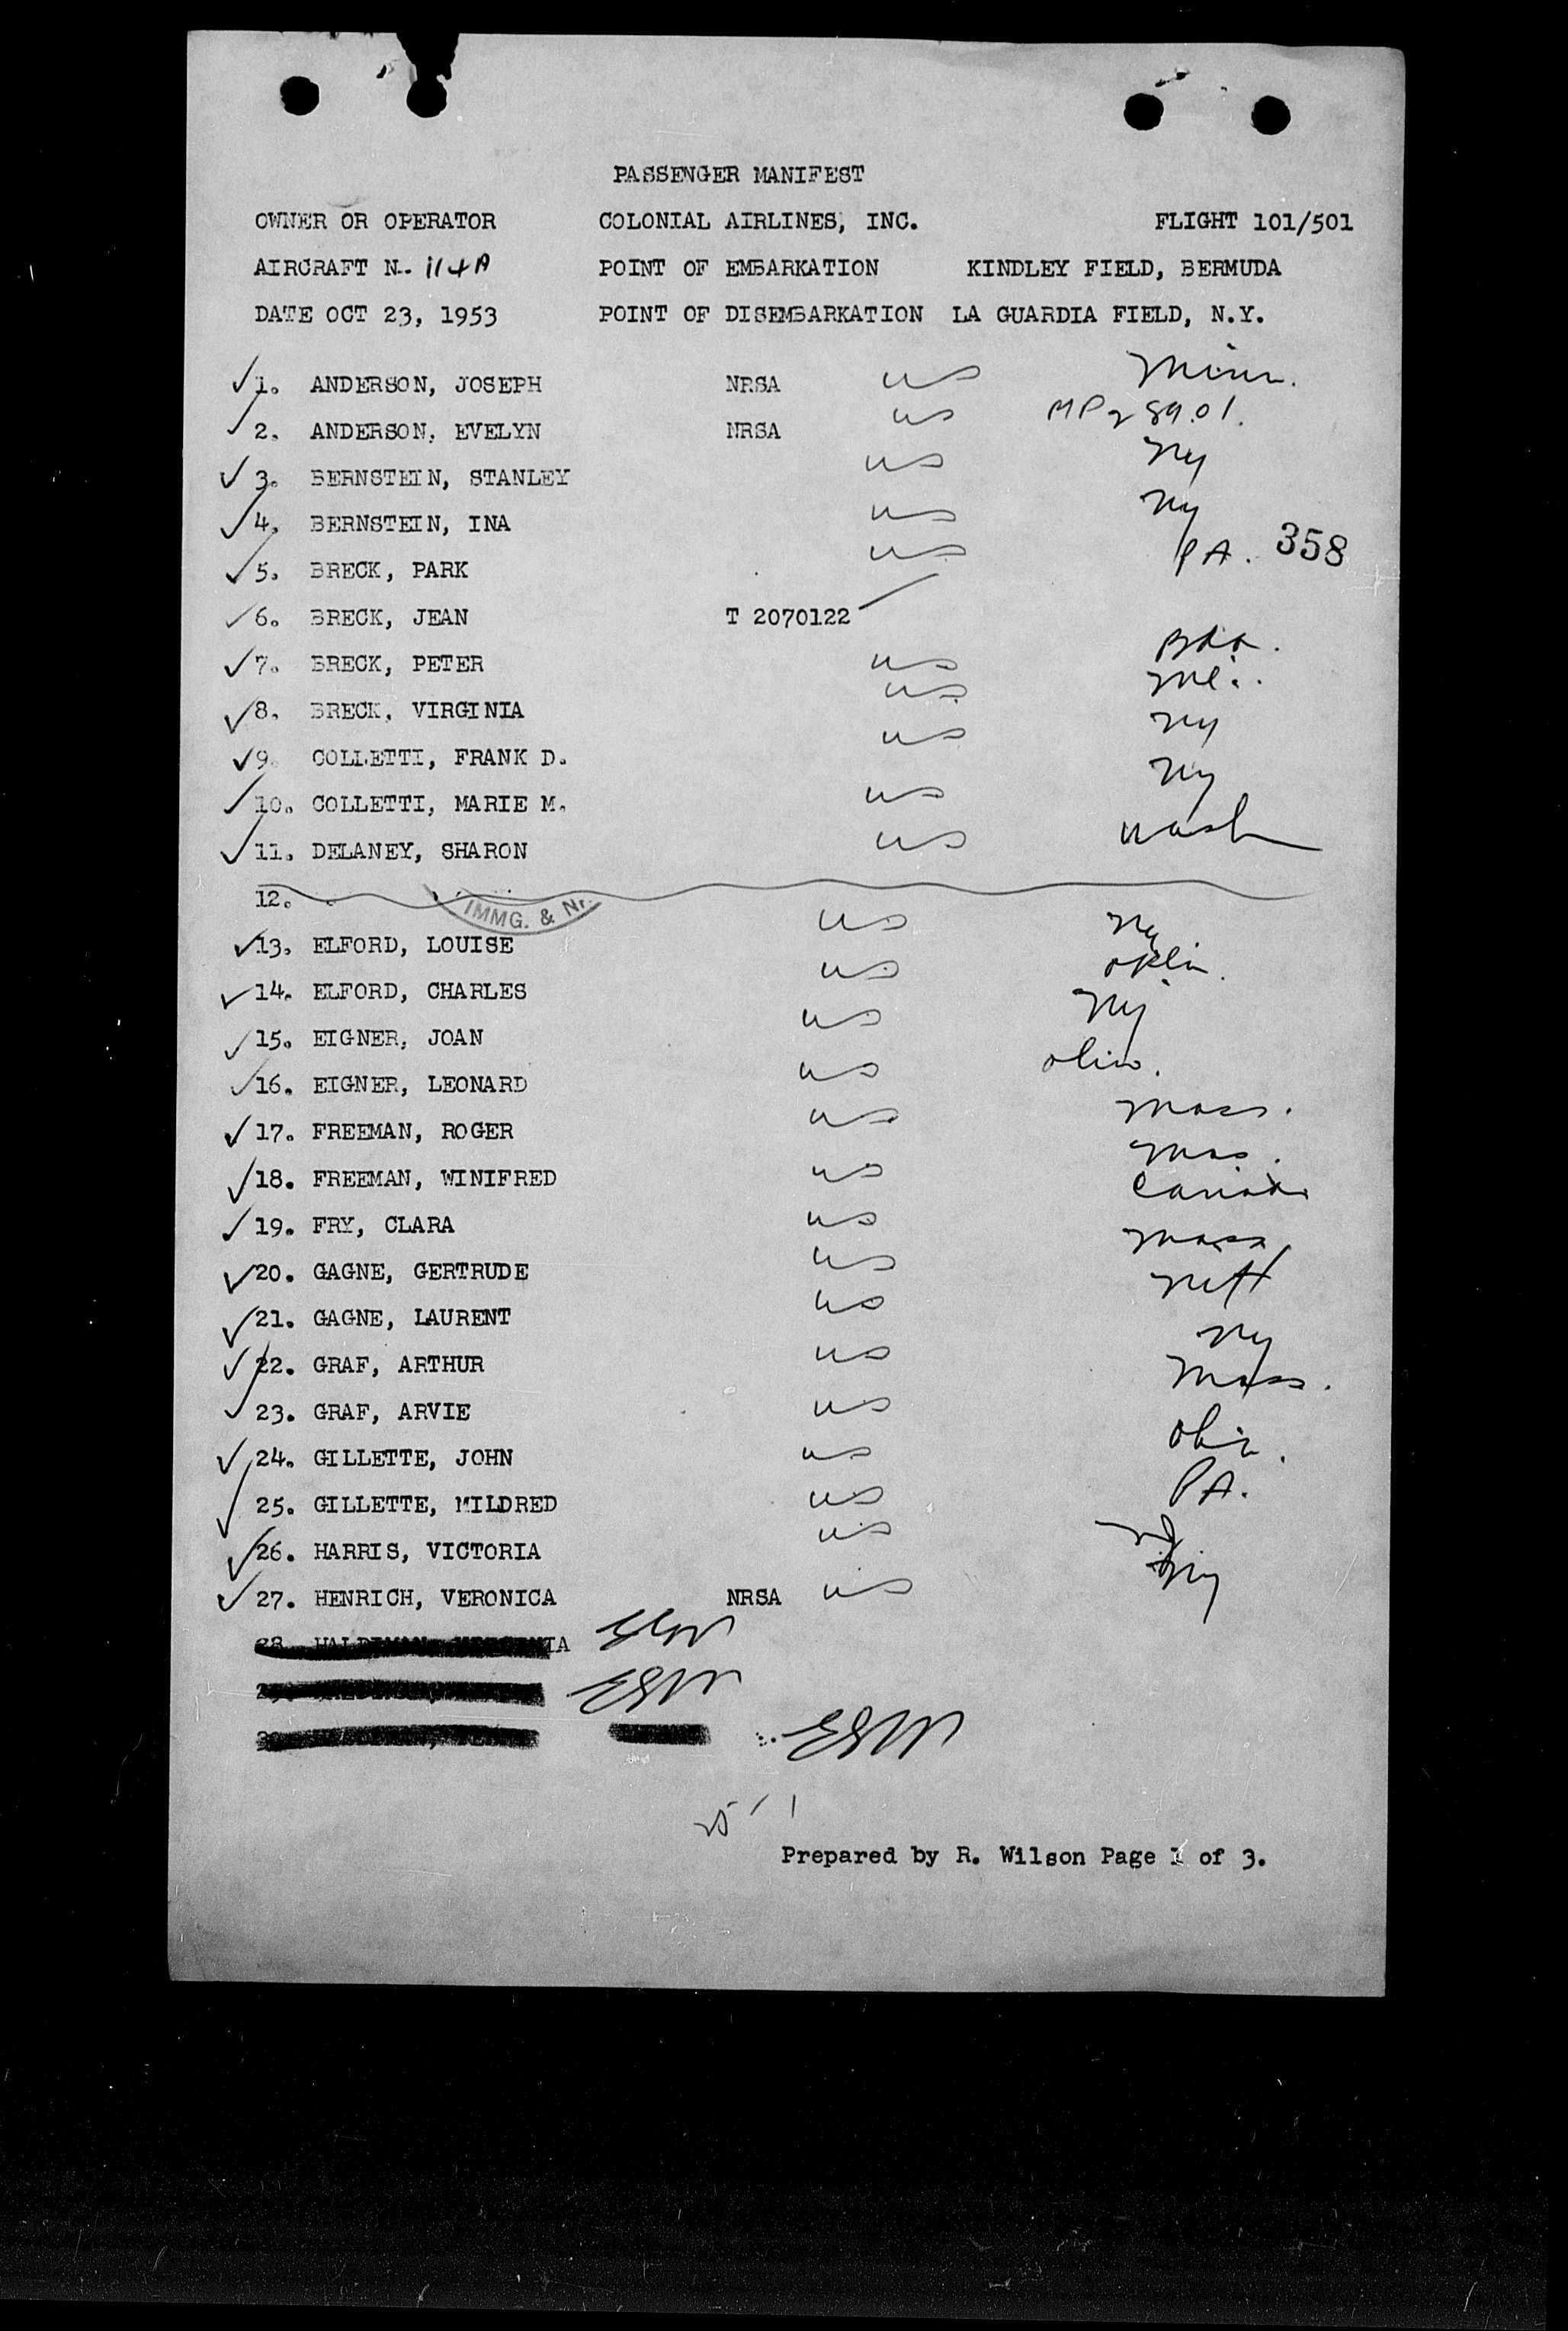 PASSENGER MANIFEST
OWNER OR OPERATOR COLONIAL AIRLINES, INC. FLIGHT 101/501
AIRCRAFT N.. 114A POINT OF EMBARKATION KINDLEY FIELD, BERMUDA
DATE OCT 23, 1953 POINT OF DISEMBARKATION LA GUARDIA FIELD, N.Y.
✓ 1. ANDERSON, JOSEPH NRSA us Minn.
✓ 2. ANDERSON, EVELYN NRSA us
✓ 3. BERNSTEIN, STANLEY us Ny
✓ 4. BERNSTEIN, INA us Ny
✓ 5. BRECK, PARK us PA. 358
✓ 6. BRECK, JEAN T 2070122
✓ 7. BRECK, PETER us Bda.
✓ 8. BRECK, VIRGINIA us
✓ 9. COLLETTI, FRANK D. us Ny
✓ 10. COLLETTI, MARIE M. us Ny
✓ 11. DELANEY, SHARON us Wash
12.
IMMG. & N
✓ 13. ELFORD, LOUISE us Ny
✓ 14. ELFORD, CHARLES us
✓ 15. EIGNER, JOAN us Nj
✓ 16. EIGNER, LEONARD us Ohio.
✓ 17. FREEMAN, ROGER us Mass.
✓ 18. FREEMAN, WINIFRED us Mas.
✓ 19. FRY, CLARA us Canada
✓ 20. GAGNE, GERTRUDE us Mass
✓ 21. GAGNE, LAURENT us NH
✓ 22. GRAF, ARTHUR us Ny
✓ 23. GRAF, ARVIE us Mass.
✓ 24. GILLETTE, JOHN us Ohio.
✓ 25. GILLETTE, MILDRED us PA.
✓ 26. HARRIS, VICTORIA us
✓ 27. HENRICH, VERONICA NRSA us Ny
28.
25 / 1
Prepared by R. Wilson Page 1 of 3.